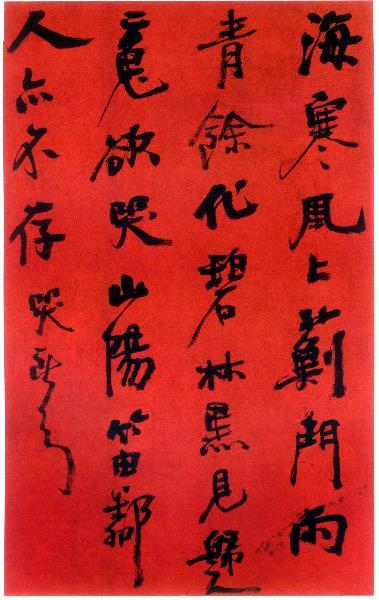 海寒風上薊門雨
青餘化碧林黑見歸
魂欲哭山陽笛鄰
人亦不存哭